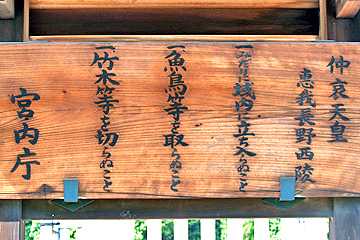 仲哀天皇
恵我長野西陵
一みだりに域内に立ち入らぬこと
一魚鳥等を取らぬこと
一竹木等を切らぬこと
宮内庁